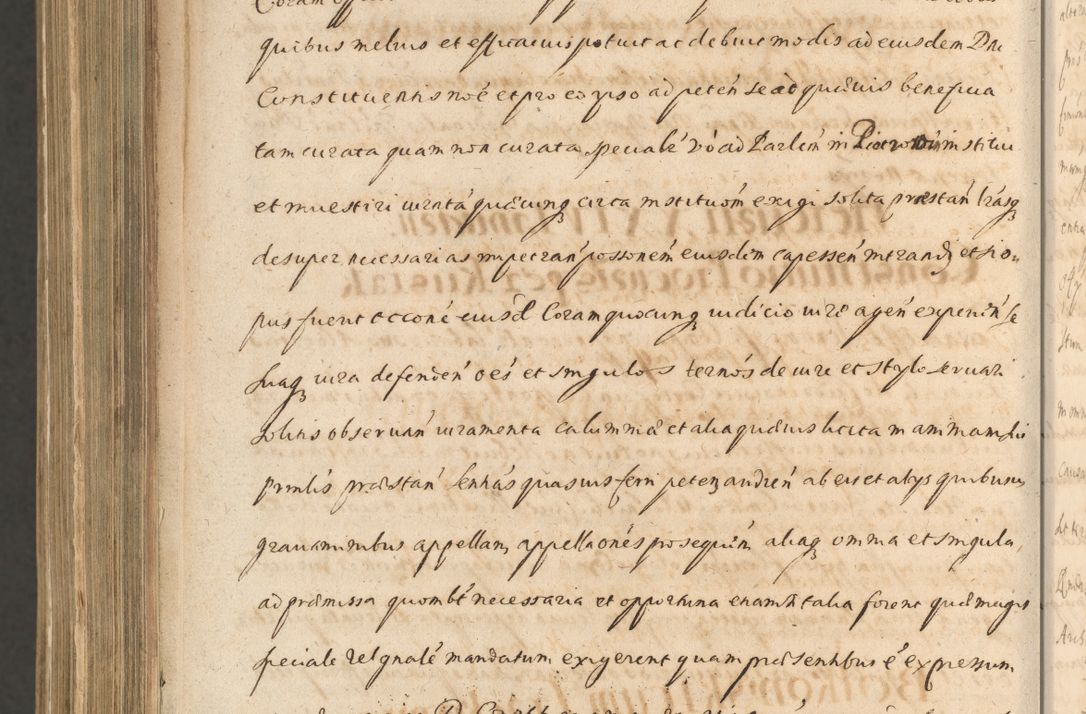 quibus melius et efficacius potuit ac debuit modis ad eiusdem Dni
Constituentis noē et pro eo ipso ad peteń se ad quæuis beneficia
tam curata quam non curata speciale v́o ad Parlem in institui
et inuestiri iuxta quæcunq circa institutōm exigi solita præstań lrasq
desuper necessarias impetrań possonem eiusdem capesseń intrandi et sio-
pus fuerit occōne eiusd Coram quocunq iudicio iure ageń experiń se
suaq iura defendeń oēs et singulos ternos de iure et stylo seruari
solitis obseruań iuramenta calumniæ et alia quæuis licita in animam sui
prmlis præstań Senhas quasuis ferri peteń audień ab eis et alys quibusuis
grauaminibus appellań appellaōnes prosequeń aliaq omnia et singula,
ad præmissa quomlbt necessaria et opportuna etiamsi talia forent quæ magis
speciale vel gnale mandatum exigerent quam præsentibus ē expressum